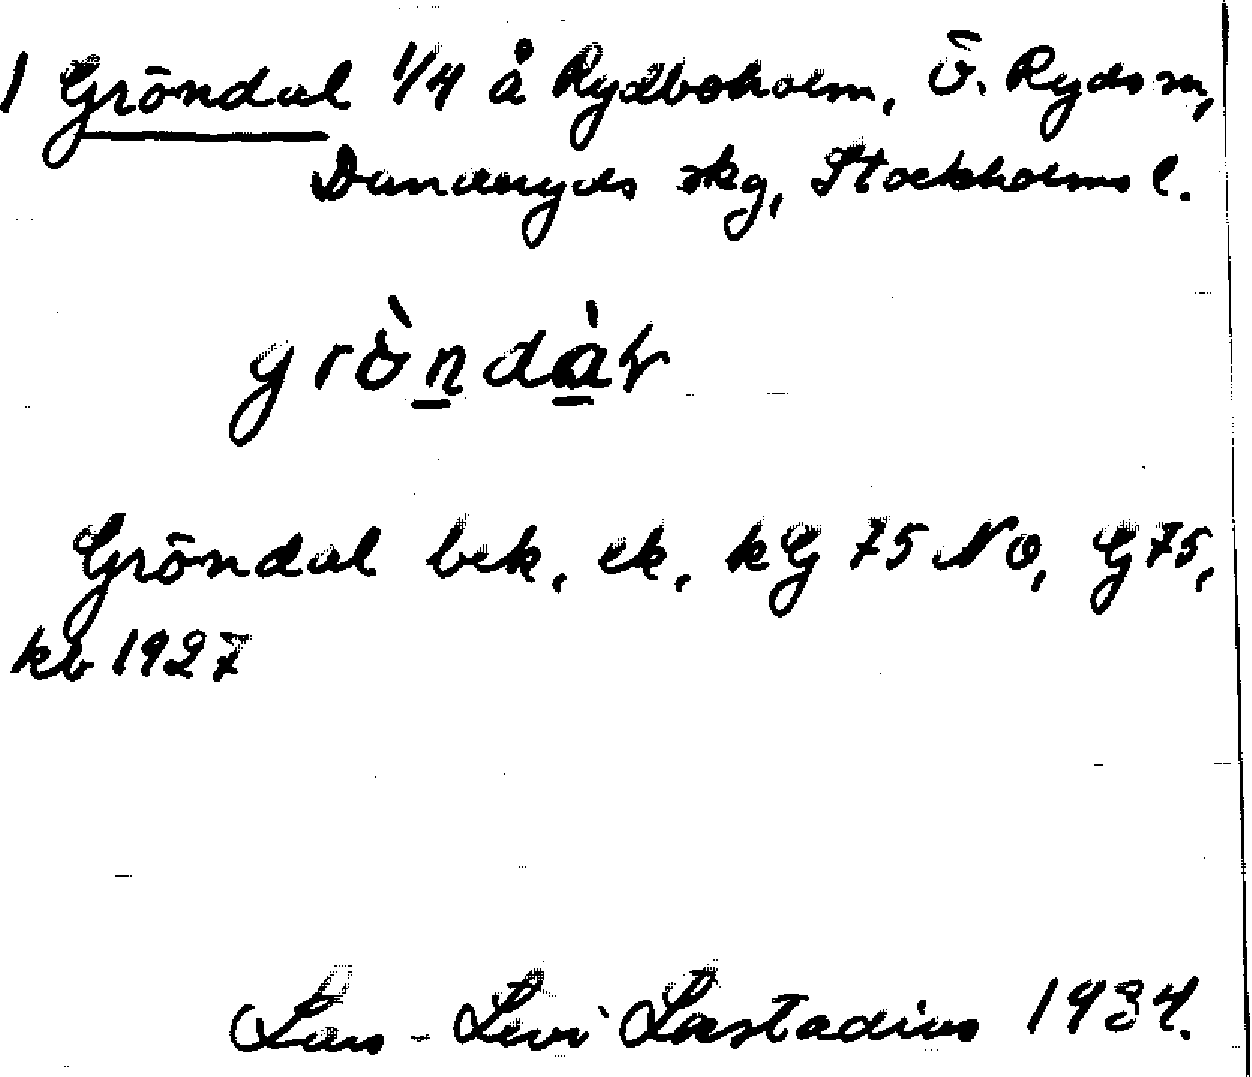 1 Gröndal 1/4 å Rydboholm, Ö. Ryds sn,
Danderyds skg, Stockholms l.
grö̀ndàl
Gröndal bek, ek, kG 75 NO, G 75,
kb 1927
Lars-Levi Læstadius 1934.